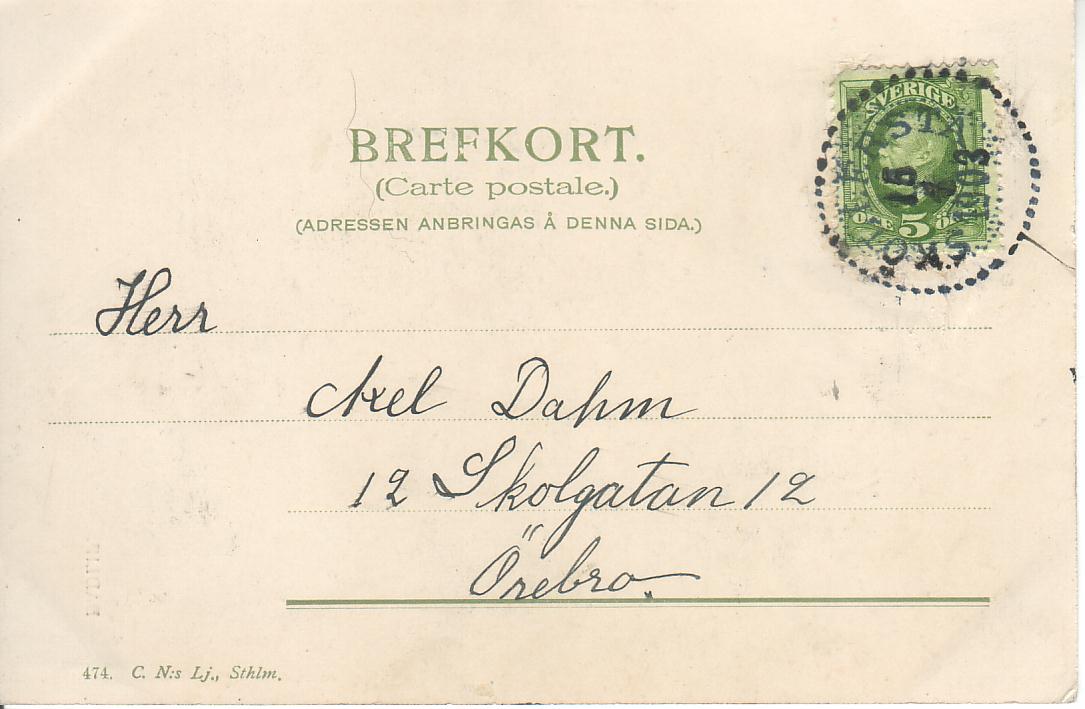 BREFKORT.
(Carte postale.)
(ADRESSEN ANBRINGAS Å DENNA SIDA.)
SVERIGE
15
1903
ÖRE 5 ÖRE
Herr
Axel Dahm
12 Skolgatan 12
Örebro.
474. C. N:s Lj., Sthlm.